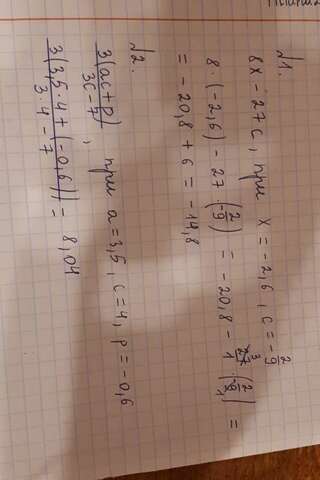 №1.
8x - 27c, при x = -2,6, c = -2/9
8 · (-2,6) - 27 · (-2/9) = -20,8 - 27/1 3 · (-2/9 1) =
= -20,8 + 6 = -14,8
№2.
3(ac+p)/3c-7, при a = 3,5, c = 4, p = -0,6
3(3,5·4+(-0,6))/3·4-7 = 8,04